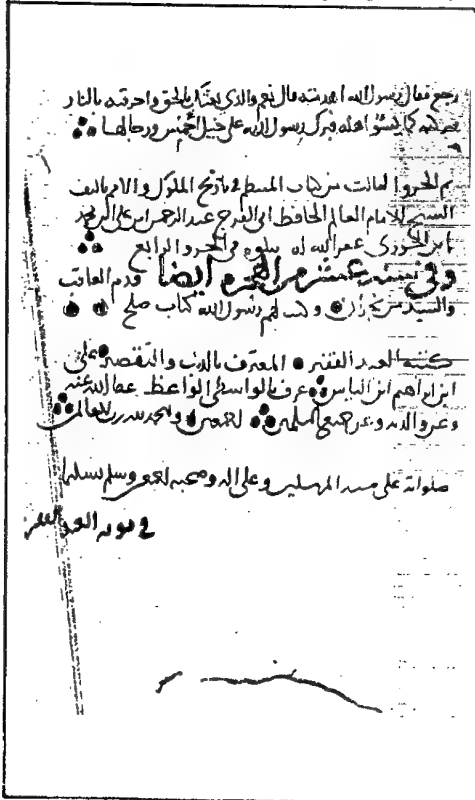 رجع فقال رسول الله اهدمته قال نعم والذي بعثك بالحق واحرقته بالنار
فتركته كما يسوءا اهله فبرك رسول الله على خيل احمس ورجالها
تم الجزو الثالث من كتاب المنتظم في تاريخ الملوك والامم تاليف
الشيخ الامام العالم الحافظ ابي الفرج عبد الرحمن ابن علي ابن محمد
ابن الجوزي غفر الله له يتلوه في الجزو الرابع
وفي سنة عشر من الهجرة ايضا قدم العاقب
والسيد من نجران وكتب لهم رسول الله كتاب صلح
كتبه العبد الفقير المعترف بالذنب والتقصير علي
ابن ابراهيم ابن الياس عرف بالواسطي الواعظ عفا الله عنه
وعن والديه وعن جميع المسلمين اجمعين والحمد لله رب العالمين
صلواته على سيد المرسلين وعلى اله وصحبه اجمعين وسلم تسليما
في نوبة العبد الفقير